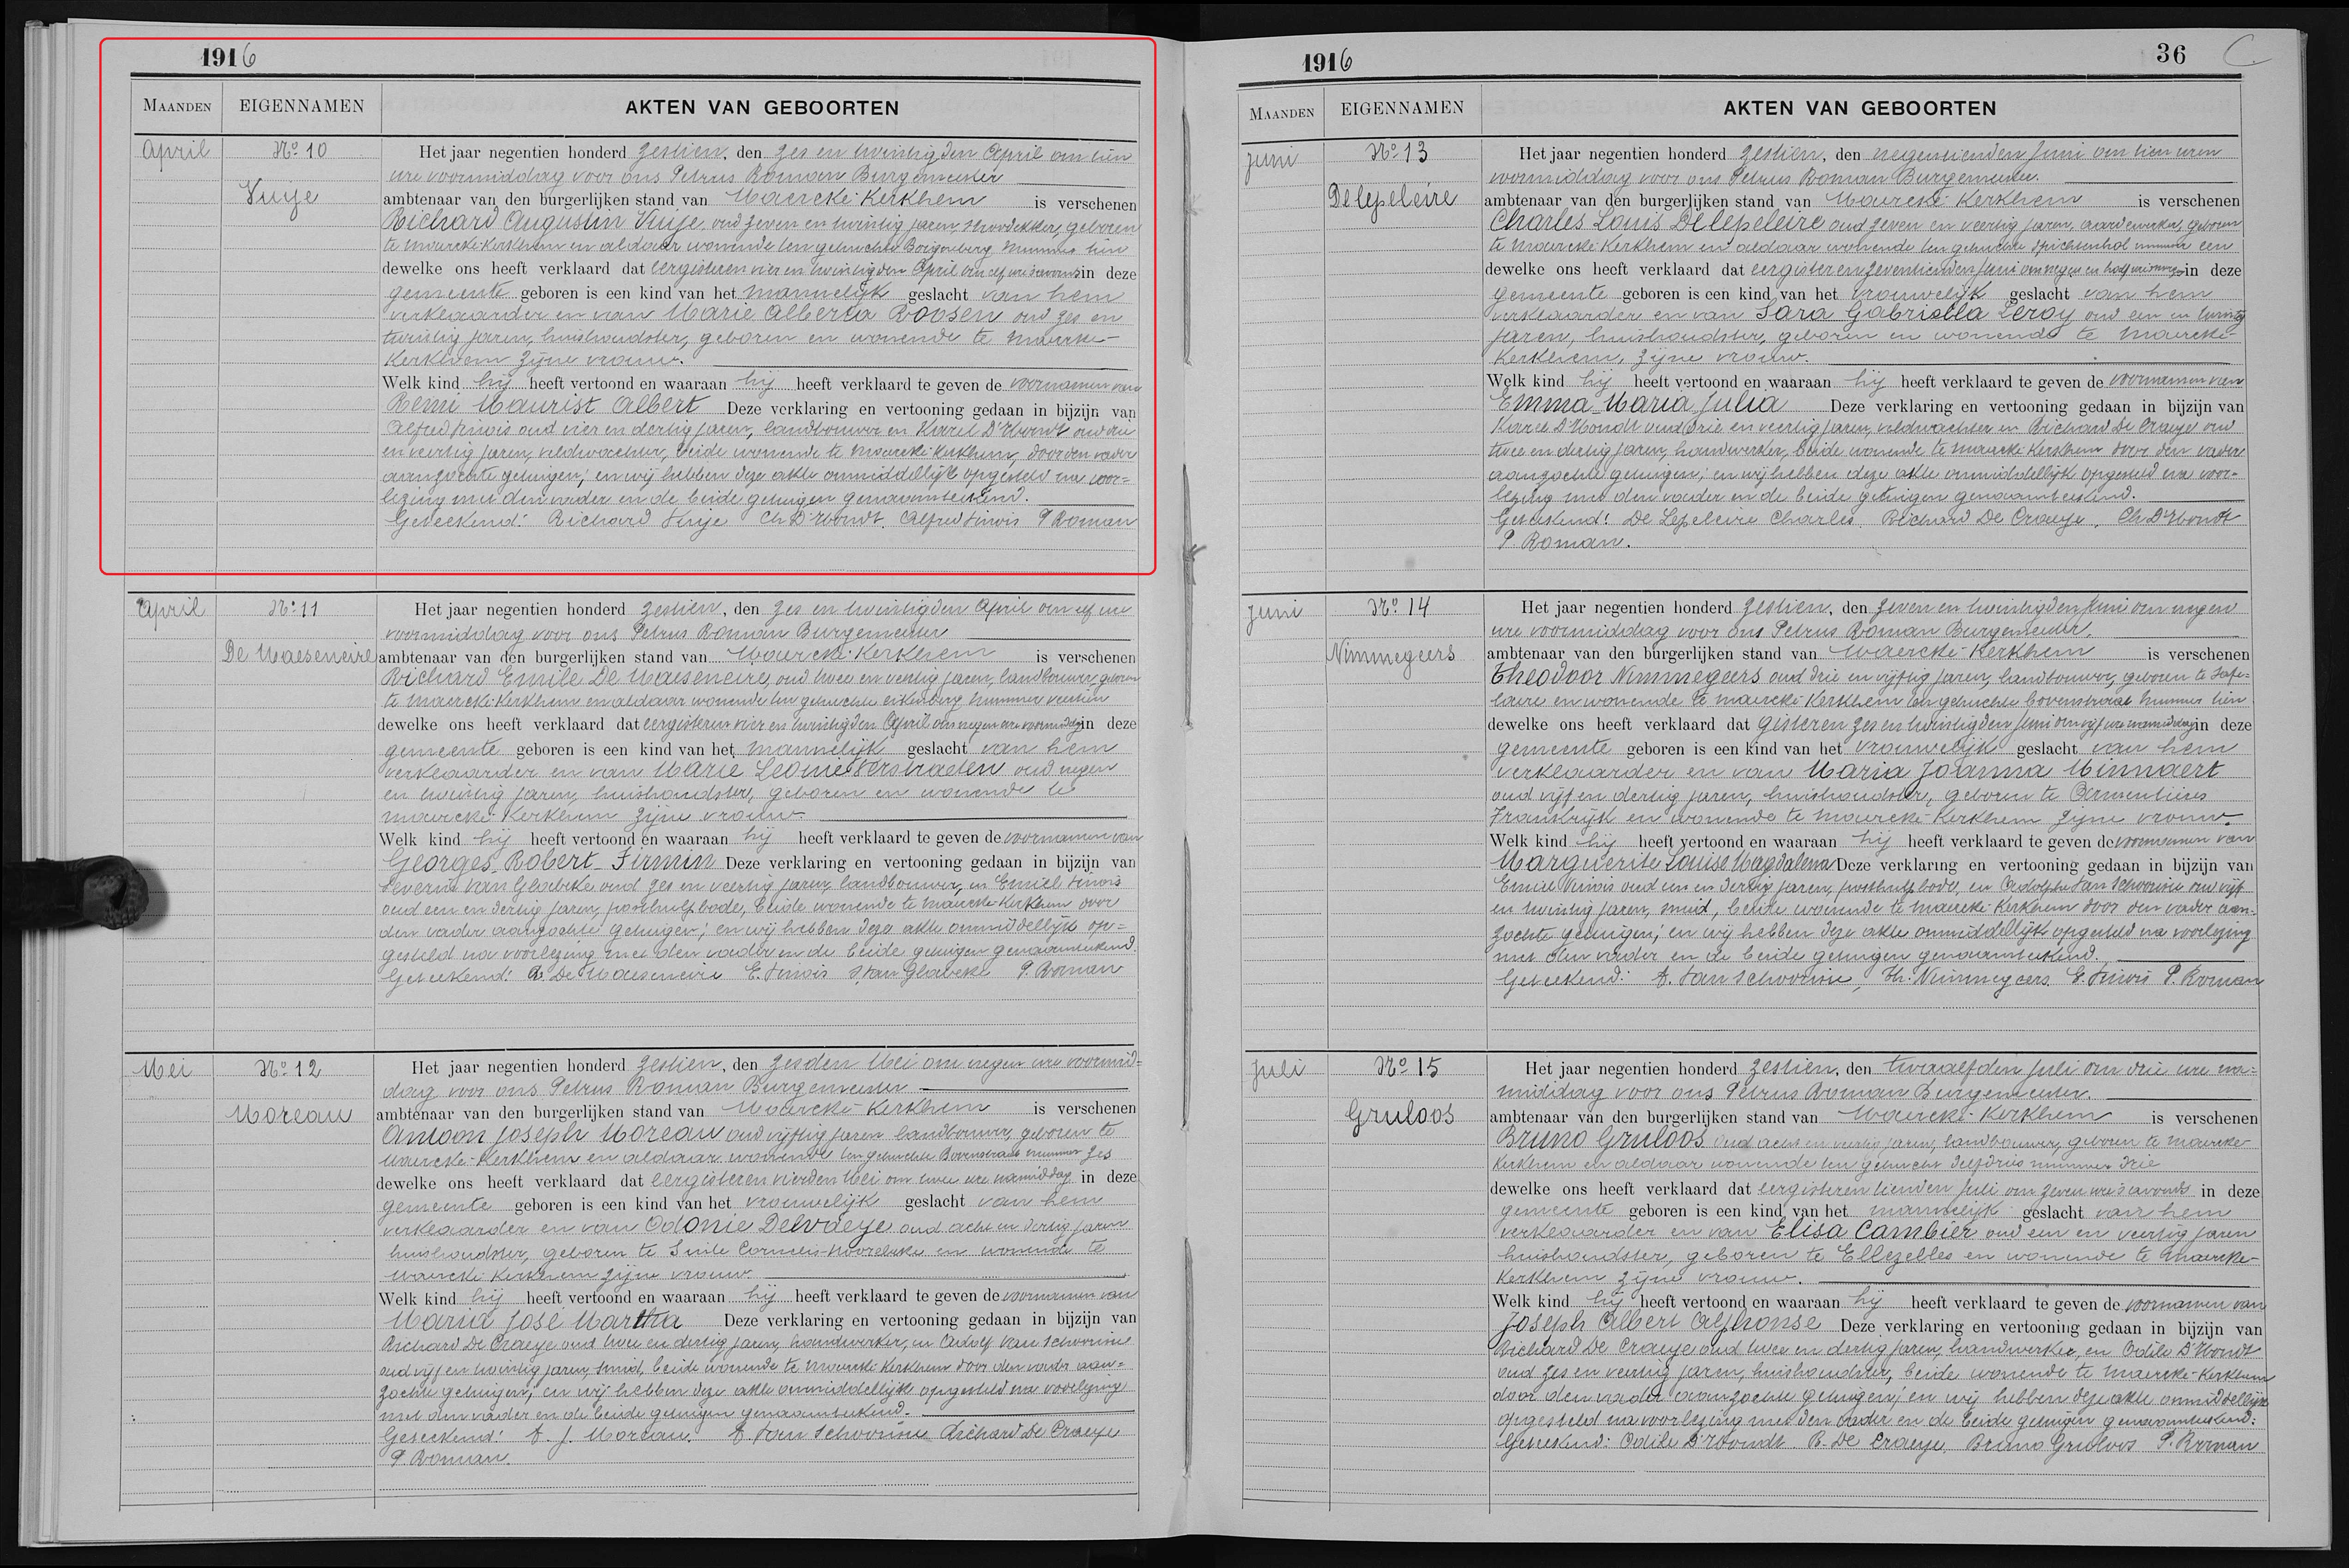 1916
MAANDEN EIGENNAMEN AKTEN VAN GEBOORTEN
April Nº 10 Het jaar negentien honderd zestien, den zes en twintigden April om tien
ure voormiddag voor ons Petrus Roman Burgemeester
Vuije ambtenaar van den burgerlijken stand van Maercke-Kerkhem is verschenen
Richard Augustin Vuije, oud zeven en twintig jaren, stroodekker, geboren
te Maercke-Kerkhem en aldaar wonende ten gehuchte nummer tien
dewelke ons heeft verklaard dat eergisteren vier en twintigden April om elf ure 's avonds in deze
gemeente geboren is een kind van het mannelijk geslacht van hem
verklaarder en van Marie Alberta Roosen oud zes en
twintig jaren, huishoudster, geboren en wonende te Maercke-
Kerkhem zijne vrouw.
Welk kind hij heeft vertoond en waaraan hij heeft verklaard te geven de voornamen van
Remi Maurist Albert Deze verklaring en vertooning gedaan in bijzijn van
Alfred oud vier en dertig jaren, landbouwer en Karel D'Hondt oud drie
en veertig jaren, veldwachter, beide wonende te Maercke-Kerkhem, door den vader
aangezochte getuigen; en wij hebben deze akte onmiddellijk opgesteld na voor=
lezing met den vader en de beide getuigen genaamteekend.
Geteekend: Richard Vuije Ch D'Hondt. Alfred P Roman
April Nº 11 Het jaar negentien honderd zestien, den zes en twintigden April om elf ure
voormiddag voor ons Petrus Roman Burgemeester
De Maeseneire ambtenaar van den burgerlijken stand van Maercke-Kerkhem is verschenen
Richard Emile De Maeseneire, oud twee en veertig jaren, landbouwer, geboren
te Maercke-Kerkhem en aldaar wonende ten gehuchte Eikenberg nummer veertien
dewelke ons heeft verklaard dat eergisteren vier en twintigden April om negen ure voormiddag in deze
gemeente geboren is een kind van het mannelijk geslacht van hem
verklaarder en van Marie Leonie Verstraeten oud negen
en twintig jaren, huishoudster, geboren en wonende te
Maercke-Kerkhem zijne vrouw
Welk kind hij heeft vertoond en waaraan hij heeft verklaard te geven de voornamen van
Georges Robert Firmin Deze verklaring en vertooning gedaan in bijzijn van
Van Glabeke oud zes en veertig jaren, landbouwer, en Emiel
oud een en dertig jaren, posthulpbode, beide wonende te Maercke-Kerkhem door
den vader aangezochte getuigen; en wij hebben deze akte onmiddellijk op=
gesteld na voorlezing met den vader en de beide getuigen genaamteekend.
Geteekend: R. De Maeseneire E. Van Glabeke P. Roman
Mei Nº 12 Het jaar negentien honderd zestien, den zesden Mei om negen ure voormid=
dag voor ons Petrus Roman Burgemeester
Moreau ambtenaar van den burgerlijken stand van Maercke-Kerkhem is verschenen
Antoon Joseph Moreau oud vijftig jaren landbouwer, geboren te
Maercke-Kerkhem en aldaar wonende ten gehuchte Bovenstraat nummer zes
dewelke ons heeft verklaard dat eergisteren vierden Mei om twee ure namiddag in deze
gemeente geboren is een kind van het vrouwelijk geslacht van hem
verklaarder en van Odonie Delvaeye oud acht en dertig jaren
huishoudster, geboren te Sinte Cornelis-Hoorebeke en wonende te
Maercke-Kerkhem zijne vrouw.
Welk kind hij heeft vertoond en waaraan hij heeft verklaard te geven de voornamen van
Maria José Martha Deze verklaring en vertooning gedaan in bijzijn van
Richard De Craeye oud twee en dertig jaren, handwerker, en Adolf Van Schoorisse
oud vijf en twintig jaren, smid, beide wonende te Maercke-Kerkhem door den vader aan=
zochte getuigen; en wij hebben deze akte onmiddellijk opgesteld na voorlezing
met den vader en de beide getuigen genaamteekend.
Geteekend: A. J. Moreau. A. Van Schoorisse Richard De Craeye
P. Roman.
1916 36
MAANDEN EIGENNAMEN AKTEN VAN GEBOORTEN
Juni Nº 13 Het jaar negentien honderd zestien, den negentienden Juni om tien uren
voormiddag voor ons Petrus Roman Burgemeester.
Delepeleire ambtenaar van den burgerlijken stand van Maercke-Kerkhem is verschenen
Charles Louis Delepeleire oud zeven en veertig jaren, aardewerker, geboren
te Maercke-Kerkhem en aldaar wonende ten gehuchte nummer een
dewelke ons heeft verklaard dat eergisteren zeventienden Juni om negen en half ure in deze
gemeente geboren is een kind van het vrouwelijk geslacht van hem
verklaarder en van Sara Gabriella Leroy oud een en twintig
jaren, huishoudster, geboren en wonende te Maercke-
Kerkhem, zijne vrouw.
Welk kind hij heeft vertoond en waaraan hij heeft verklaard te geven de voornamen van
Emma Maria Julia Deze verklaring en vertooning gedaan in bijzijn van
Karel D'Hondt oud drie en veertig jaren, veldwachter en Richard De Craeye oud
twee en dertig jaren, handwerker, beide wonende te Maercke-Kerkhem door den vader
aangezochte getuigen; en wij hebben deze akte onmiddellijk opgesteld na voor-
lezing met den vader en de beide getuigen genaamteekend.
Geteekend: De Lepeleire Charles. Richard De Craeye, Ch D'Hondt
P. Roman.
Juni Nº 14 Het jaar negentien honderd zestien, den zeven en twintigden Juni om negen
ure voormiddag voor ons Petrus Roman Burgemeester,
Nimmegeers ambtenaar van den burgerlijken stand van Maercke-Kerkhem is verschenen
Theodoor Nimmegeers oud drie en vijftig jaren, landbouwer, geboren te
en wonende te Maercke-Kerkhem ten gehuchte Bovenstraat nummer tien
dewelke ons heeft verklaard dat gisteren zes en twintigden Juni om vijf ure namiddag in deze
gemeente geboren is een kind van het vrouwelijk geslacht van hem
verklaarder en van Maria Joanna Minnaert
oud vijf en dertig jaren, huishoudster, geboren te Armentiers
Frankrijk en wonende te Maercke-Kerkhem zijne vrouw.
Welk kind hij heeft vertoond en waaraan hij heeft verklaard te geven de voornamen van
Marguerite Louise Magdalena Deze verklaring en vertooning gedaan in bijzijn van
Emiel oud een en dertig jaren, posthulpbode, en Adolphe Van Schoorisse oud vijf
en twintig jaren, smid, beide wonende te Maercke-Kerkhem door den vader aan-
zochte getuigen; en wij hebben deze akte onmiddellijk opgesteld na voorlezing
met den vader en de beide getuigen genaamteekend.
Geteekend: A. Van Schoorisse, Th. Nimmegeers. E. P. Roman
Juli Nº 15 Het jaar negentien honderd zestien, den twaalfden Juli om drie ure na=
middag voor ons Petrus Roman Burgemeester.
Gruloos ambtenaar van den burgerlijken stand van Maercke-Kerkhem is verschenen
Bruno Gruloos oud acht en veertig jaren, landbouwer, geboren te Maercke
Kerkhem en aldaar wonende ten gehucht nummer drie
dewelke ons heeft verklaard dat eergisteren tienden Juli om zeven ure 's avonds in deze
gemeente geboren is een kind van het mannelijk geslacht van hem
verklaarder en van Elisa Cambier oud een en veertig jaren
huishoudster, geboren te Ellezelles en wonende te Maercke-
Kerkhem zijne vrouw.
Welk kind hij heeft vertoond en waaraan hij heeft verklaard te geven de voornamen van
Joseph Albert Alphonse Deze verklaring en vertooning gedaan in bijzijn van
Richard De Craeye oud twee en dertig jaren, handwerker, en Odile D'Hondt
oud zes en veertig jaren, huishoudster, beide wonende te Maercke-Kerkhem
door den vader aanzochte getuigen; en wij hebben deze akte onmiddellijk
opgesteld na voorlezing met den vader en de beide getuigen genaamteekend:
Geteekend: Odile D'Hondt R. De Craeye Bruno Gruloos P. Roman